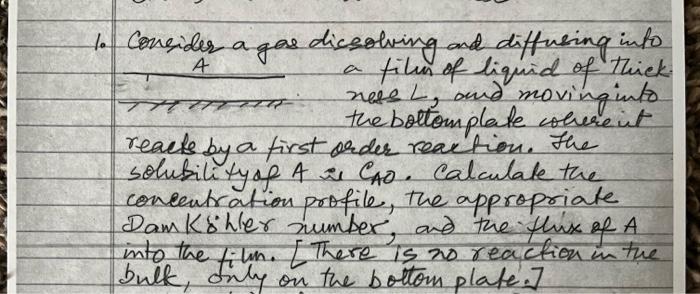 1. Consider a gas dissolving and diffusing into
A a film of liquid of Thick-
ness L, and moving into
the bottom plate where it
reacts by a first order reaction. The
solubility of A is CAO. Calculate the
concentration profile, the appropriate
Damköhler number, and the flux of A
into the film. [There is no reaction in the
bulk, only on the bottom plate.]